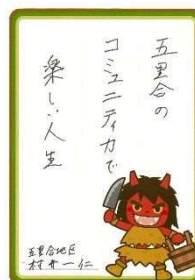 五里合の
コミュニティカで
楽しい人生
五里合地区
村井一仁